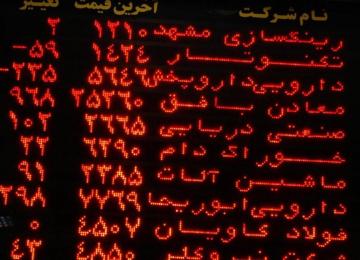 نام شرکت آخرین قیمت تغییر
رینگسازی مشهد ۱۲۱۰ ۲
تکنوتار ۱۴۲۴ -۵۹
دارویی داروپخش ۵۶۴۶ -۲۳۵
معادن بافق ۲۵۳۶۰ ۹۶۸
صنعتی دریایی ۲۶۶۵ ۱۰۲
خوراک دام ۶۲۹۰ ۲۲
ماشین آلات ۲۳۸۵ ۹۱
دارویی ابوریحا ۷۷۶۹ ۲۹۸
فولاد کاویان ۴۵۰۷ ۰
۴۸۵۰ ۴۳